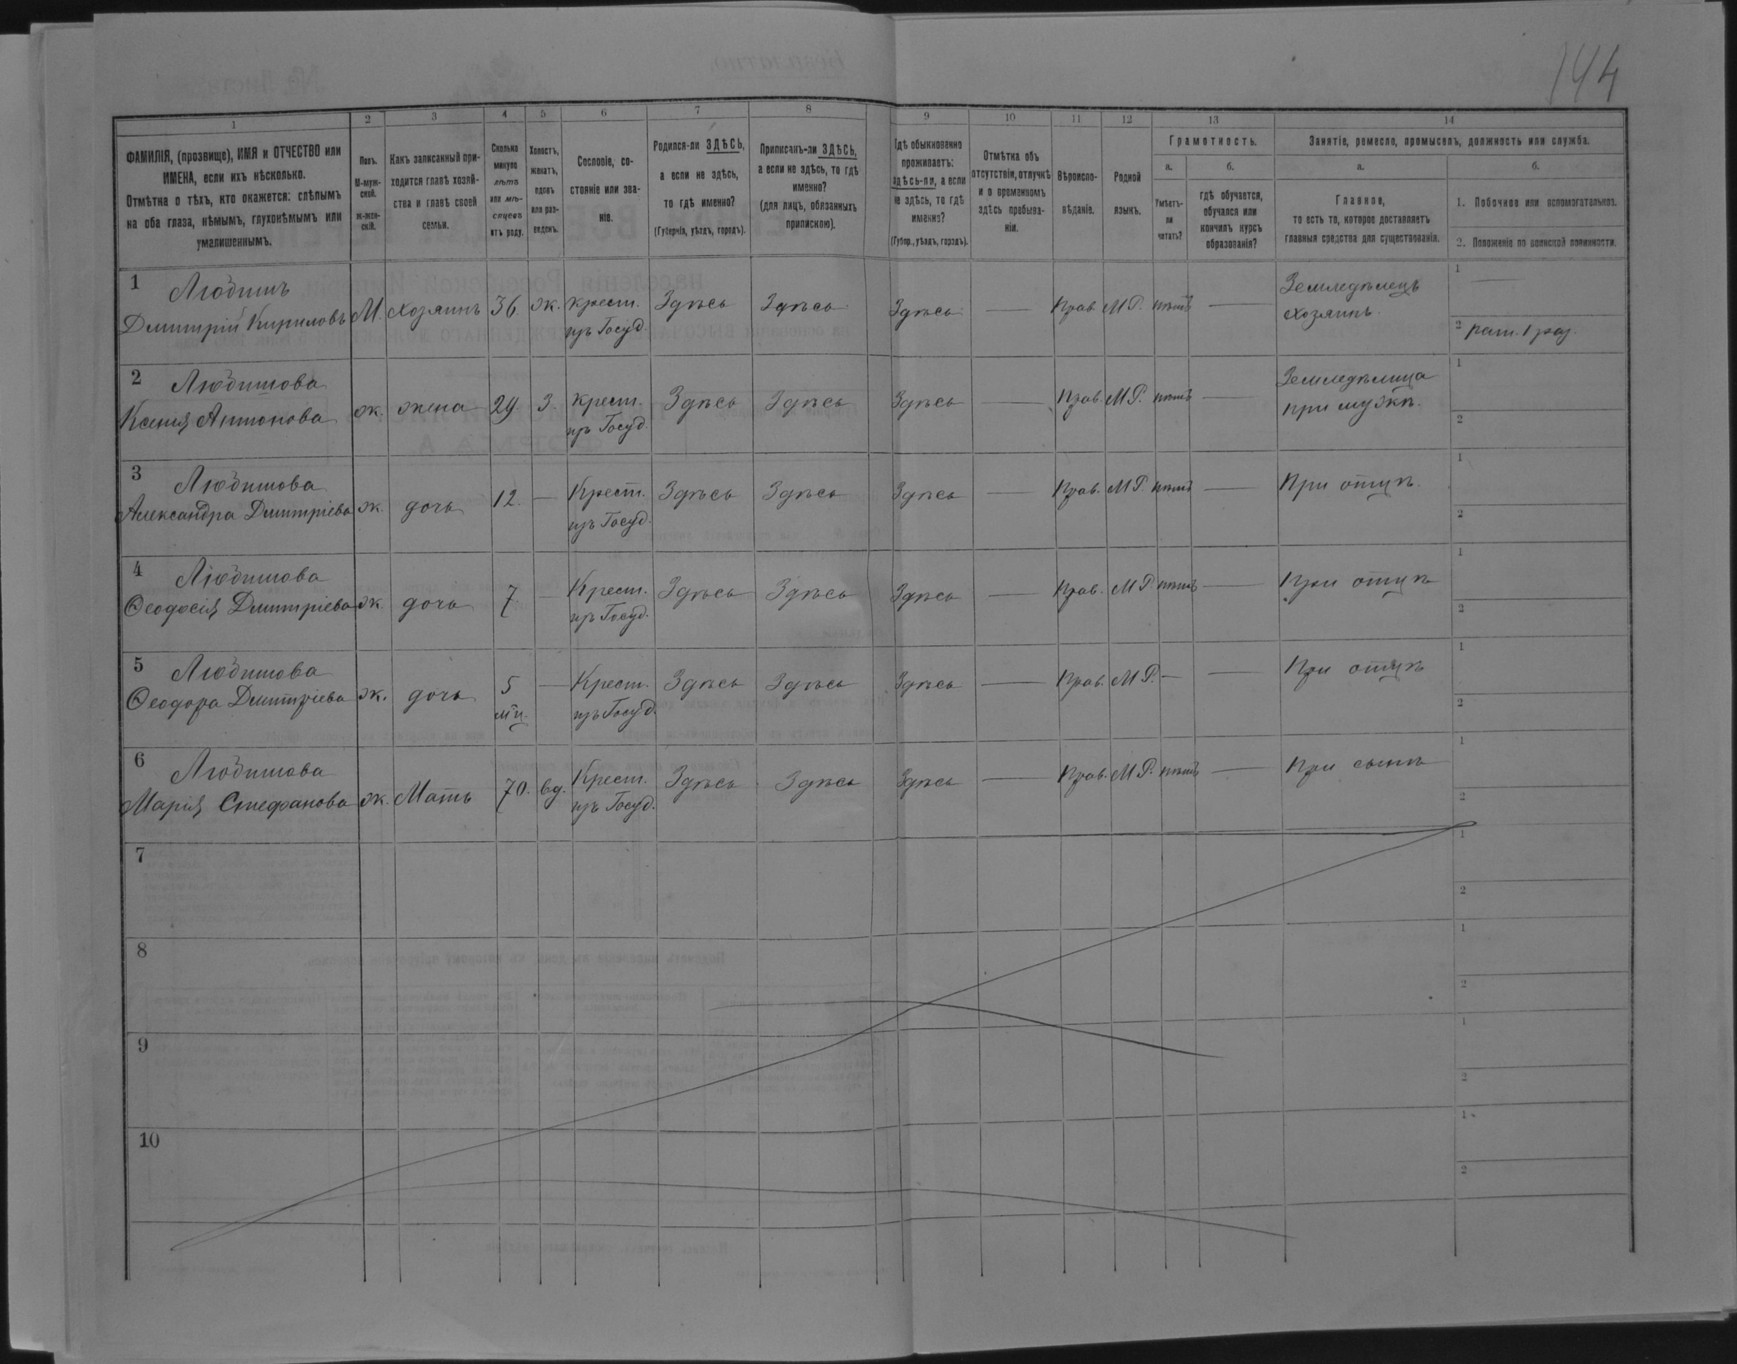 144
1 2 3 4 5 6 7 8 9 10 11 12 13 14
ФАМИЛІЯ, (прозвище), ИМЯ и ОТЧЕСТВО или
ИМЕНА, если ихъ нѣсколько.
Отмѣтка о тѣхъ, кто окажется: слѣпымъ
на оба глаза, нѣмымъ, глухонѣмымъ или
умалишеннымъ.
Полъ.
М-муж-
ской.
ж-жен-
скій.
Какъ записанный при-
ходится главѣ хозяй-
ства и главѣ своей
семьи.
Сколько
минуло
лѣтъ
или мѣ-
сяцевъ
отъ роду.
Холостъ,
женатъ,
вдовъ
или раз-
веденъ.
Сословіе, со-
стояніе или зва-
ніе.
Родился-ли ЗДѢСЬ,
а если не здѣсь,
то гдѣ именно?
(Губернія, уѣздъ, городъ).
Приписанъ-ли ЗДѢСЬ,
а если не здѣсь, то гдѣ
именно?
(для лицъ, обязанныхъ
припискою).
Гдѣ обыкновенно
проживаетъ:
здѣсь-ли, а если
не здѣсь, то гдѣ
именно?
(Губер., уѣздъ, городъ).
Отмѣтка объ
отсутствіи, отлучкѣ
и о временномъ
здѣсь пребыва-
ніи.
Вѣроиспо-
вѣданіе.
Родной
языкъ.
Грамотность.
а.
Умѣетъ-
ли
читать?
б.
гдѣ обучается,
обучался или
кончилъ курсъ
образованія?
Занятіе, ремесло, промыселъ, должность или служба.
а.
Главное,
то есть то, которое доставляетъ
главныя средства для существованія.
б.
1. Побочное или вспомогательное.
2. Положеніе по воинской повинности.
1 Любишъ
Дмитрій Кириловъ М. хозяинъ 36. ж. крест. изъ Госуд. Здѣсь Здѣсь Здѣсь — Прав. М.Р. нѣтъ — Земледѣлецъ хозяинъ. 1 — 2 рат. 1 раз.
2 Любишова
Ксенія Антонова ж. жена 29 З. крест. изъ Госуд. Здѣсь Здѣсь Здѣсь — Прав. М.Р. нѣтъ — Земледѣлица при мужѣ. 1 2
3 Любишова
Александра Дмитріева ж. дочь 12. — Крест. изъ Госуд. Здѣсь Здѣсь Здѣсь — Прав. М.Р. нѣтъ — При отцѣ. 1 2
4 Любишова
Ѳеодосія Дмитріева ж. дочь 7 — Крест. изъ Госуд. Здѣсь Здѣсь Здѣсь — Прав. М.Р. нѣтъ — При отцѣ 1 2
5 Любишова
Ѳеодора Дмитріева ж. дочь 5 мц. — Крест. изъ Госуд. Здѣсь Здѣсь Здѣсь — Прав. М.Р. — — При отцѣ 1 2
6 Любишова
Марія Стефанова ж. Мать 70. вд. Крест. изъ Госуд. Здѣсь Здѣсь Здѣсь — Прав. М.Р. нѣтъ — При сынѣ 1 2
7 1 2
8 1 2
9 1 2
10 1 2